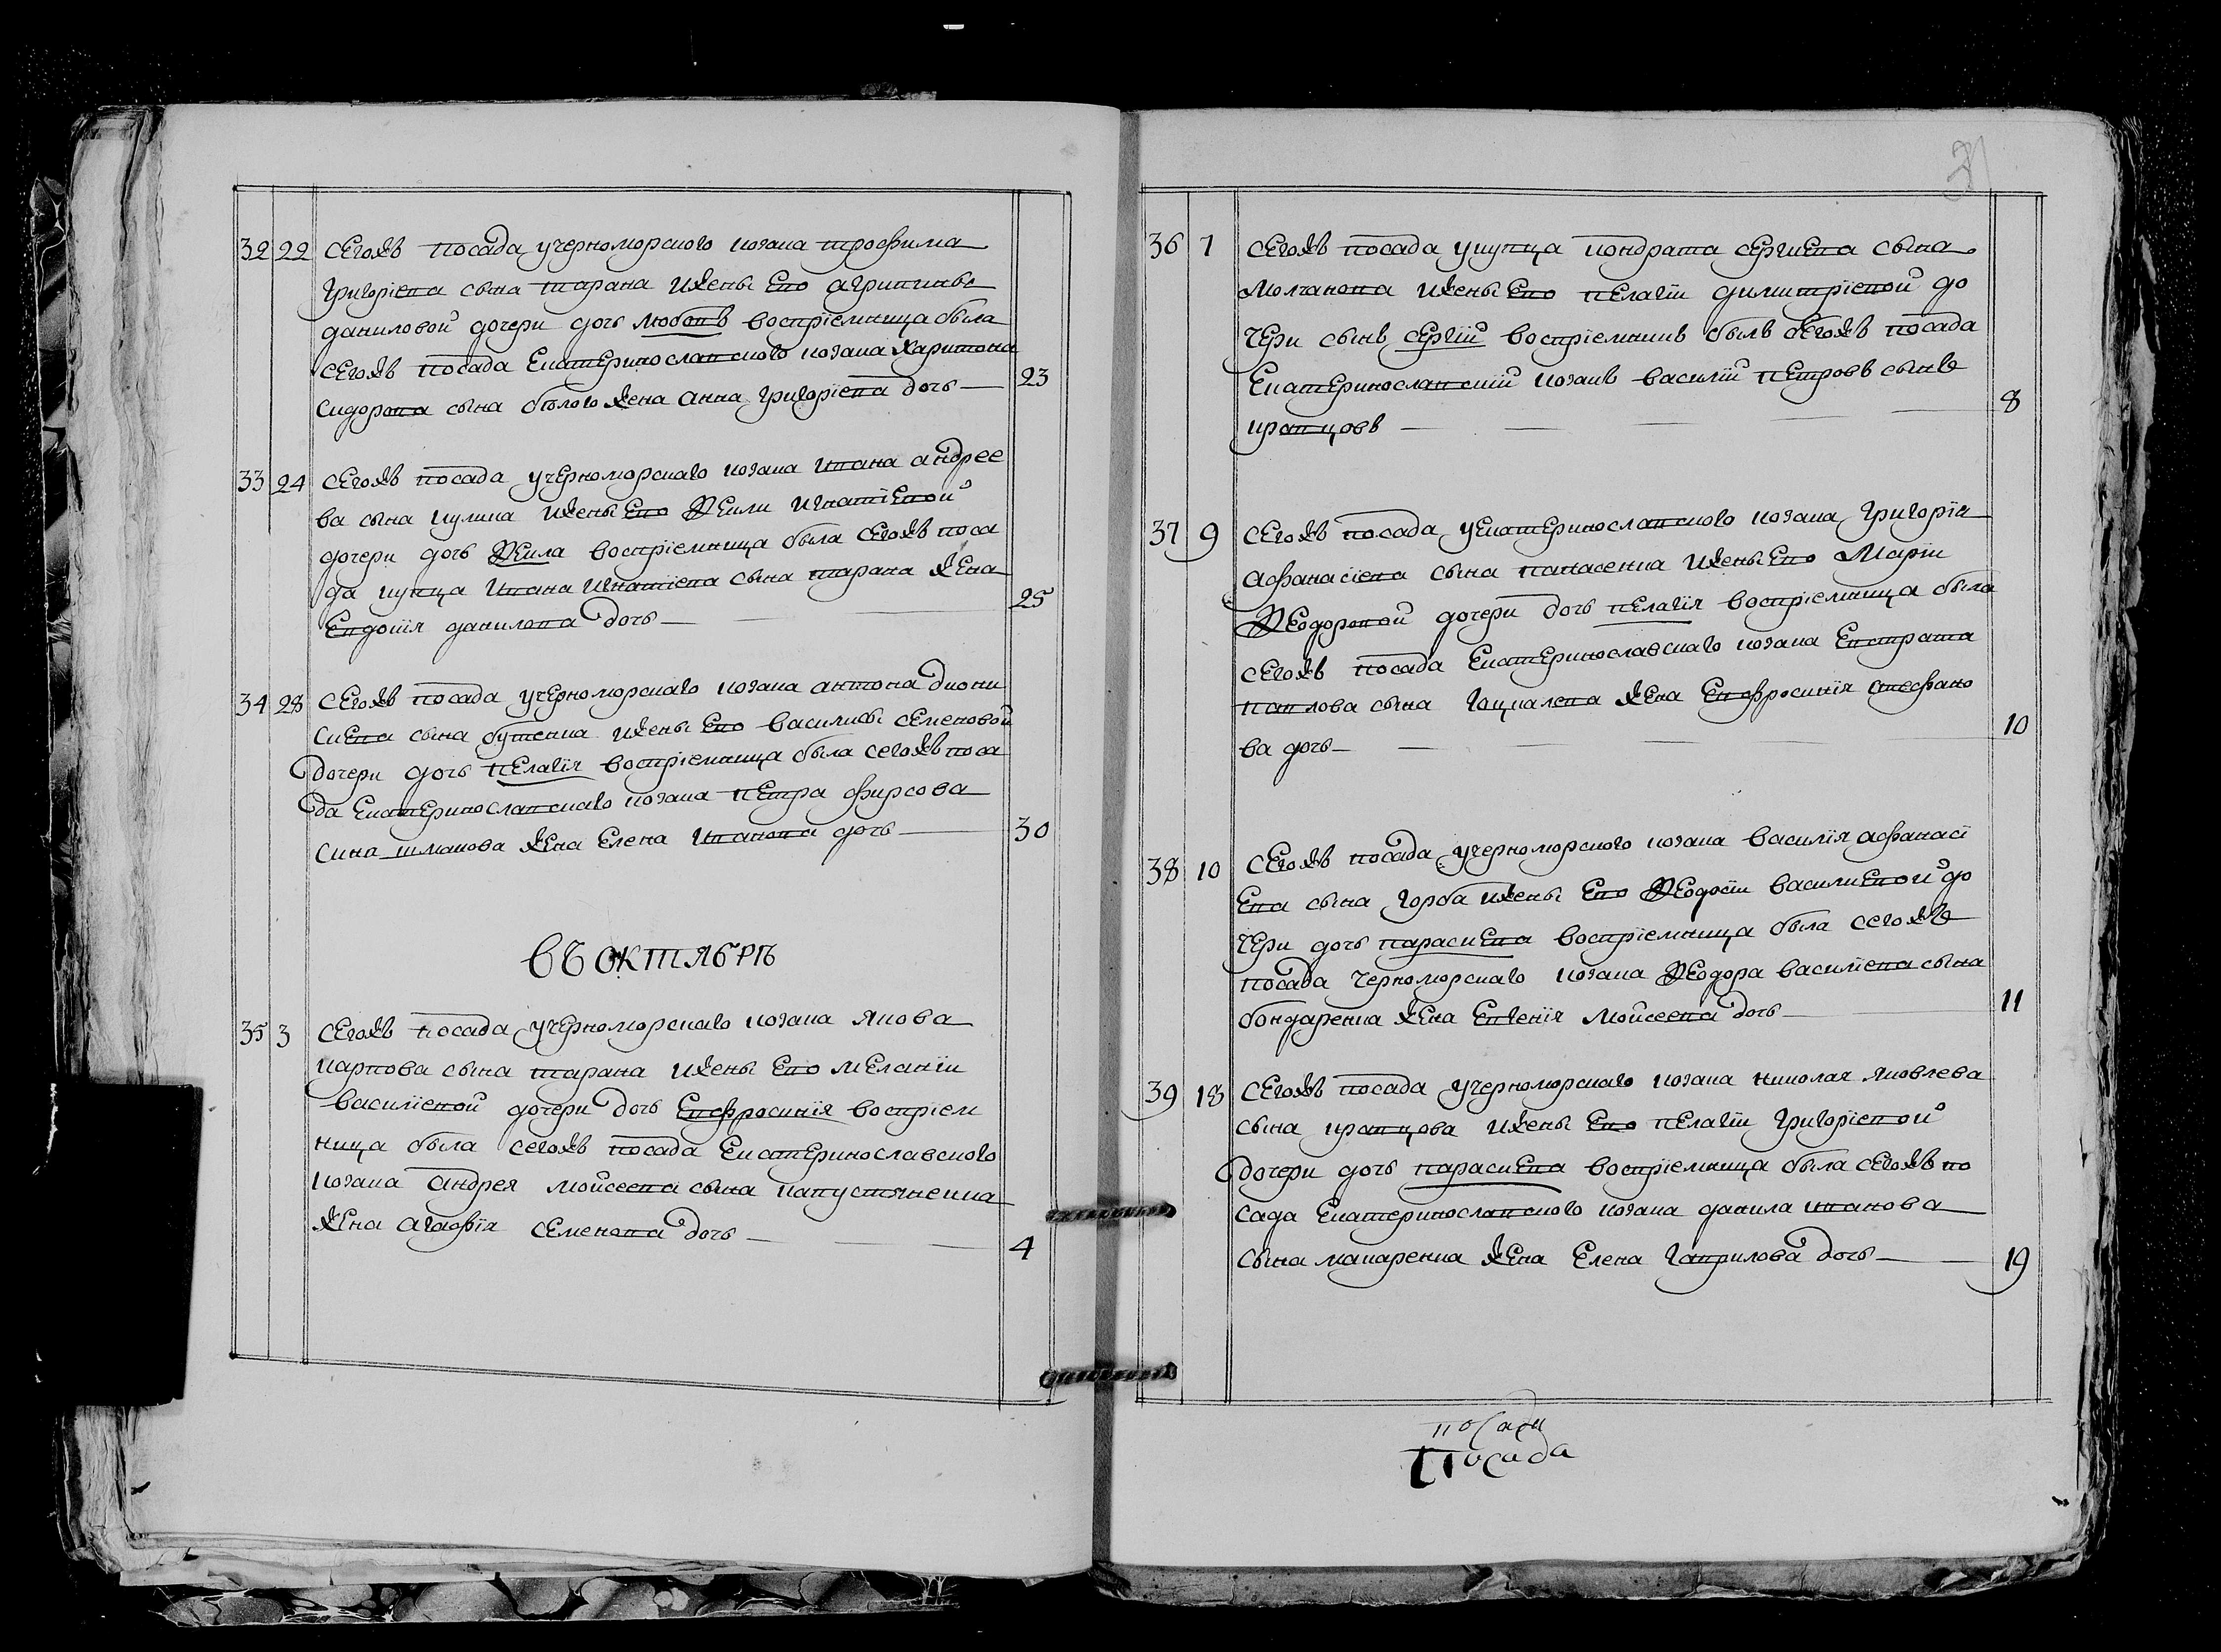 31
32 22 сегожъ посада учерноморского козака трофима
григориева сына тарана ижены его агрипины
даниловой дочери дочь любовъ восприемница была
сегожъ посада Екатеринославского козака харитона
сидорова сына белого жена анна григориева дочь 23
33 24 сегожъ посада учерноморскаго козака ивана андрее
ва сына кулика ижены его Ѳекли игнатиевой
дочери дочь Ѳекла восприемница была сегожъ поса
да купца ивана игнатиева сына тарана жена
Евдокия данилова дочь 25
34 28 сегожъ посада учерноморскаго козака антона диони
сиева сына бутенка ижены его василисы семеновой
дочери дочь пелагия восприемница была сегожъ поса
да Екатеринославскаго козака петра фирсова
сина шмакова жена Елена иванова дочь 30
въ октябрѣ
35 3 сегожъ посада учерноморскаго козака якова
карпова сына тарана ижены его мелании
василиевой дочери дочь Евфросиния восприем
ница была сегожъ посада Екатеринославского
козака андрея мойсеева сына капустяненка
жена агафия семенова дочь 4
36 7 сегожъ посада укупца кондрата сергиева сына
молчанова ижены его пелагии димитриевой до
чери сынъ сергий восприемникъ былъ сегожъ посада
Екатеринославский козакъ василий петровъ сынъ
кравцовъ 8
37 9 сегожъ посада уекатеринославского козака григория
афанасиева сына панасенка ижены его Марии
Ѳеодоровой дочери дочь пелагия восприемница была
сегожъ посада Екатеринославскаго козака Евстрата
павлова сына гоцкалева жена Евфросиния стефано
ва дочь 10
38 10 сегожъ посада учерноморского козака василия афанаси
ева сына горба ижены его Ѳеодосии василиевой до
чери дочь параскева восприемница была сегожъ
посада черноморскаго козака Ѳеодора василиева сына
бондаренка жена Евгения мойсеева дочь 11
39 18 сегожъ посада учерноморскаго козака николая яковлева
сына кравцова ижены его пелагии григориевой
дочери дочь параскева восприемница была сегожъ по
сада Екатеринославского козака данила иванова
сына макаренка жена Елена гаврилова дочь 19
посади
Посада